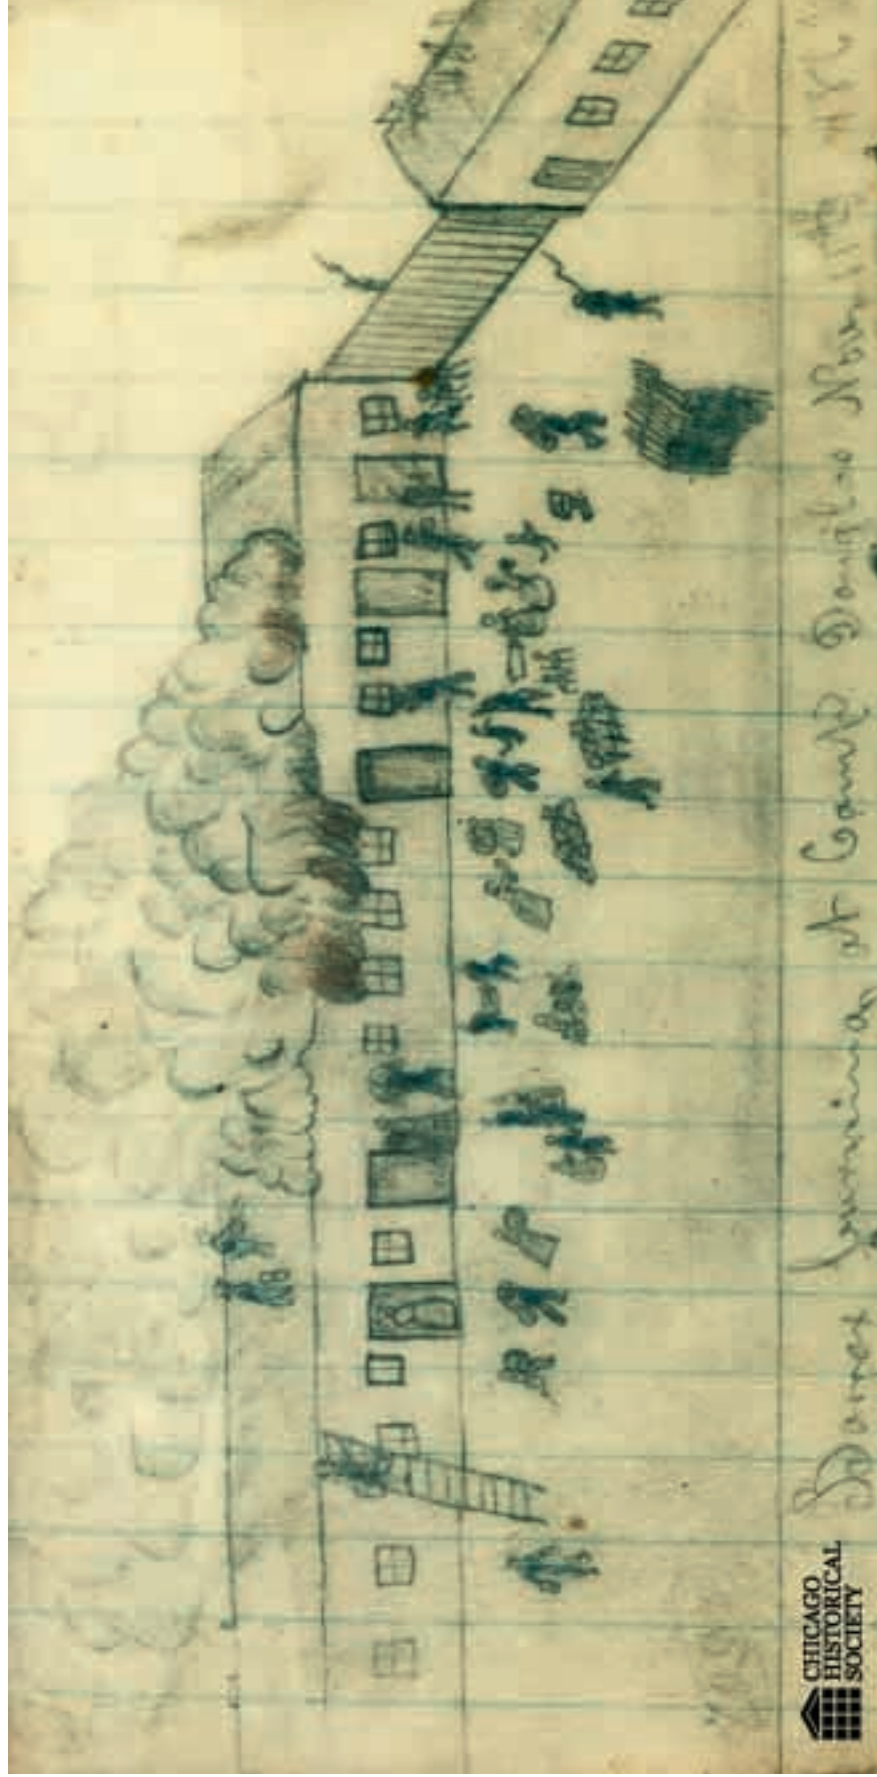 Barrex burning at Camp Douglas Nov. 11th 186
CHICAGO
HISTORICAL
SOCIETY